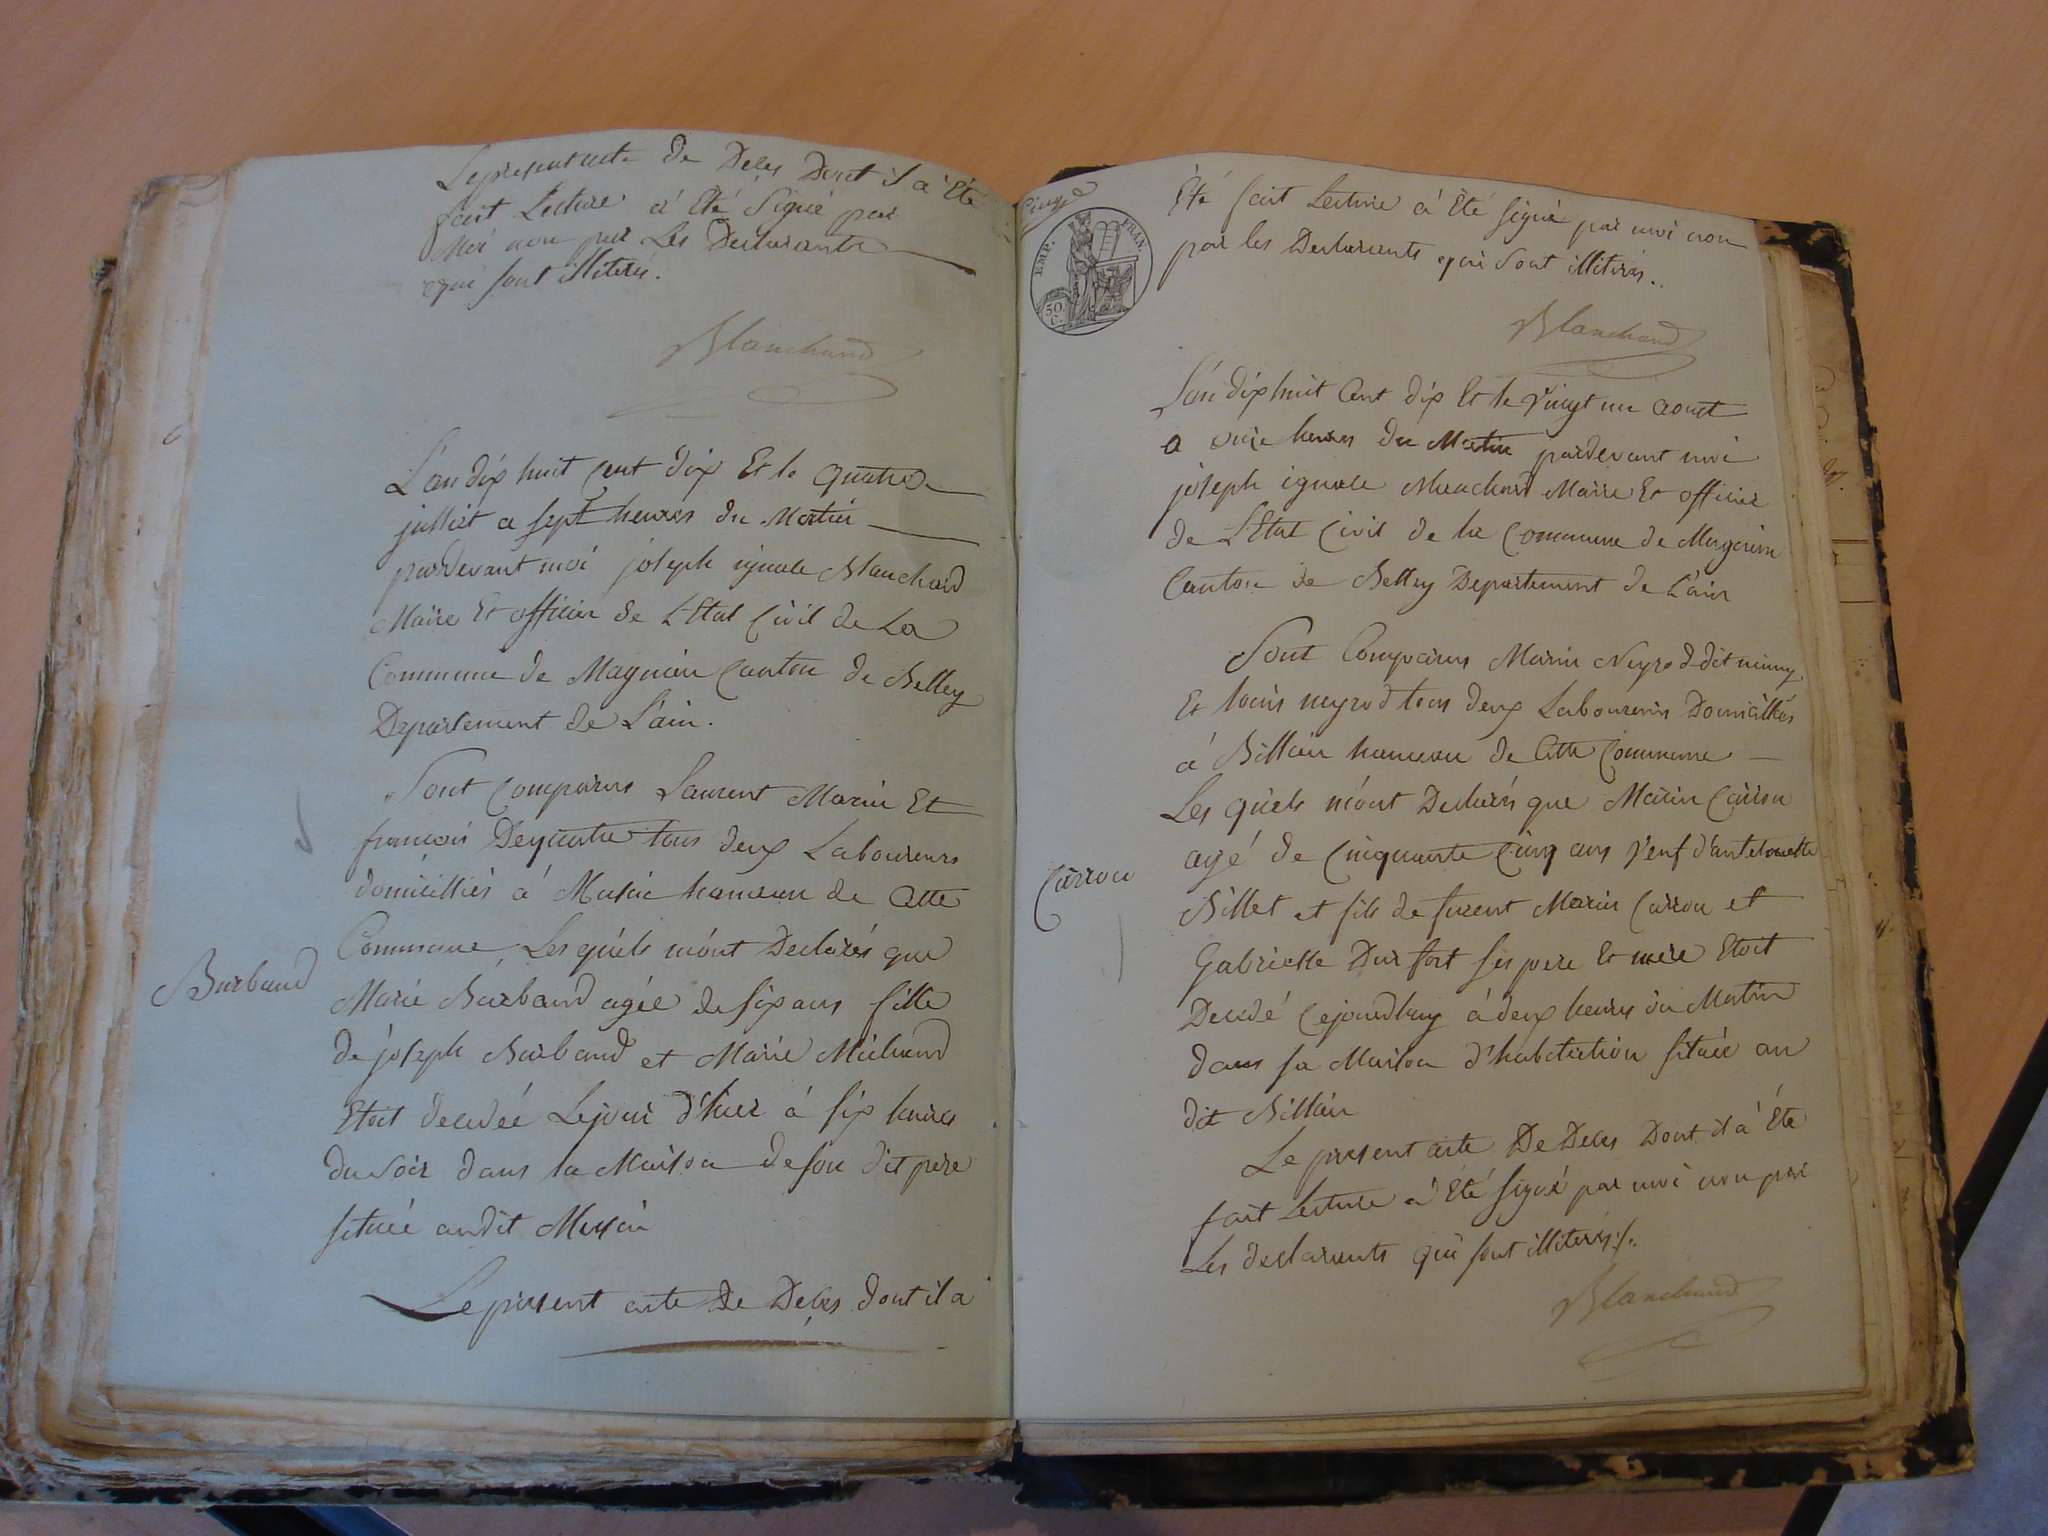 Le present acte de Deces Dont il a Eté
fait Lecture a Eté Signé par
Moi non par Les Declarants
qui sont illiterés.
Blanchard
L'an dix huit Cent dix Et le quatre
julliet a sept heures du Matin
pardevant moi joseph ignace Blanchard
Maire Et officier de L'Etat Civil de La
Commune de Magnieu Canton de Belley
Departement de L'ain.
Sont Comparus Laurent Marin Et
francois tous deux Laboureurs
domicilliés à Musin hameau de Cette
Commune, Les quels m'ónt Declarés que
Burbaud
Marie Burbaud agée de six ans fille
de joseph Burbaud et Marie
Etoit decedée Le jour d'hier à six heures
du soir dans la Maison de son dit pere
située audit Musin
Le present acte De Deces dont il a
EMP. FRAN.
50 C.
Eté fait Lecture a Eté signé par moi non
par les Declarants qui sont illiterés..
Blanchard
L'an dix huit Cent dix Et le Vingt un aoust
a onze heures du Matin pardevant moi
joseph ignace Blanchard Maire Et officier
de L'Etat Civil de la Commune de Magnieu
Canton de Belley Departement de L'ain
Sont Comparus Marin Neyrod dit
Et louis neyrod tous deux Laboureurs Domicilliés
à Billieu hameau de Cette Commune
Les quels m'ont Declarés que Marin Carron
Carron
agé de Cinquante Cinq ans Veuf d'antelmette
Billet et fils de furent Marin Carron et
Gabrielle Dur fort ses pere Et mere Etoit
Decedé Cejourdhuy à deux heures du Matin
dans sa Maison d'habitation située au
dit Billieu
Le present acte De Deces Dont il a Eté
fait Lecture a Eté signé par moi non par
Les declarants qui sont illiterés./.
Blanchard